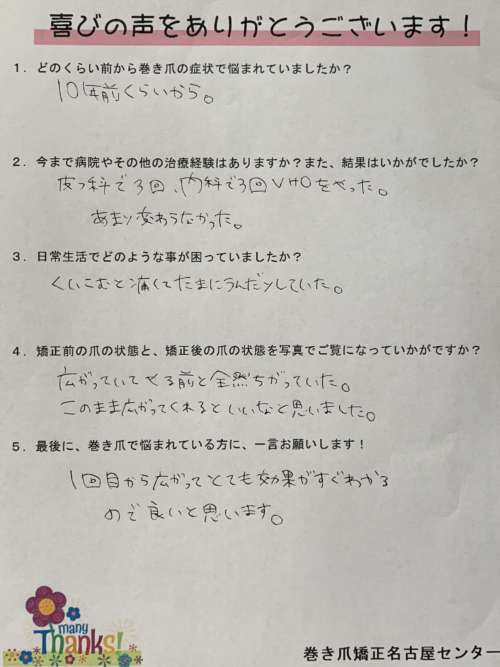 喜びの声をありがとうございます！
1．どのくらい前から巻き爪の症状で悩まれていましたか？
10年前くらいから。
2．今まで病院やその他の治療経験はありますか？また、結果はいかがでしたか？
皮フ科で3回、内科で3回VHOをやった。
あまり変わらなかった。
3．日常生活でどのような事が困っていましたか？
くいこむと痛くてたまにうんだりしていた。
4．矯正前の爪の状態と、矯正後の爪の状態を写真でご覧になっていかがですか？
広がっていてやる前と全然ちがっていた。
このまま広がってくれるといいなと思いました。
5．最後に、巻き爪で悩まれている方に、一言お願いします！
1回目から広がってとても効果がすぐわかる
ので良いと思います。
many
Thanks!
巻き爪矯正名古屋センター